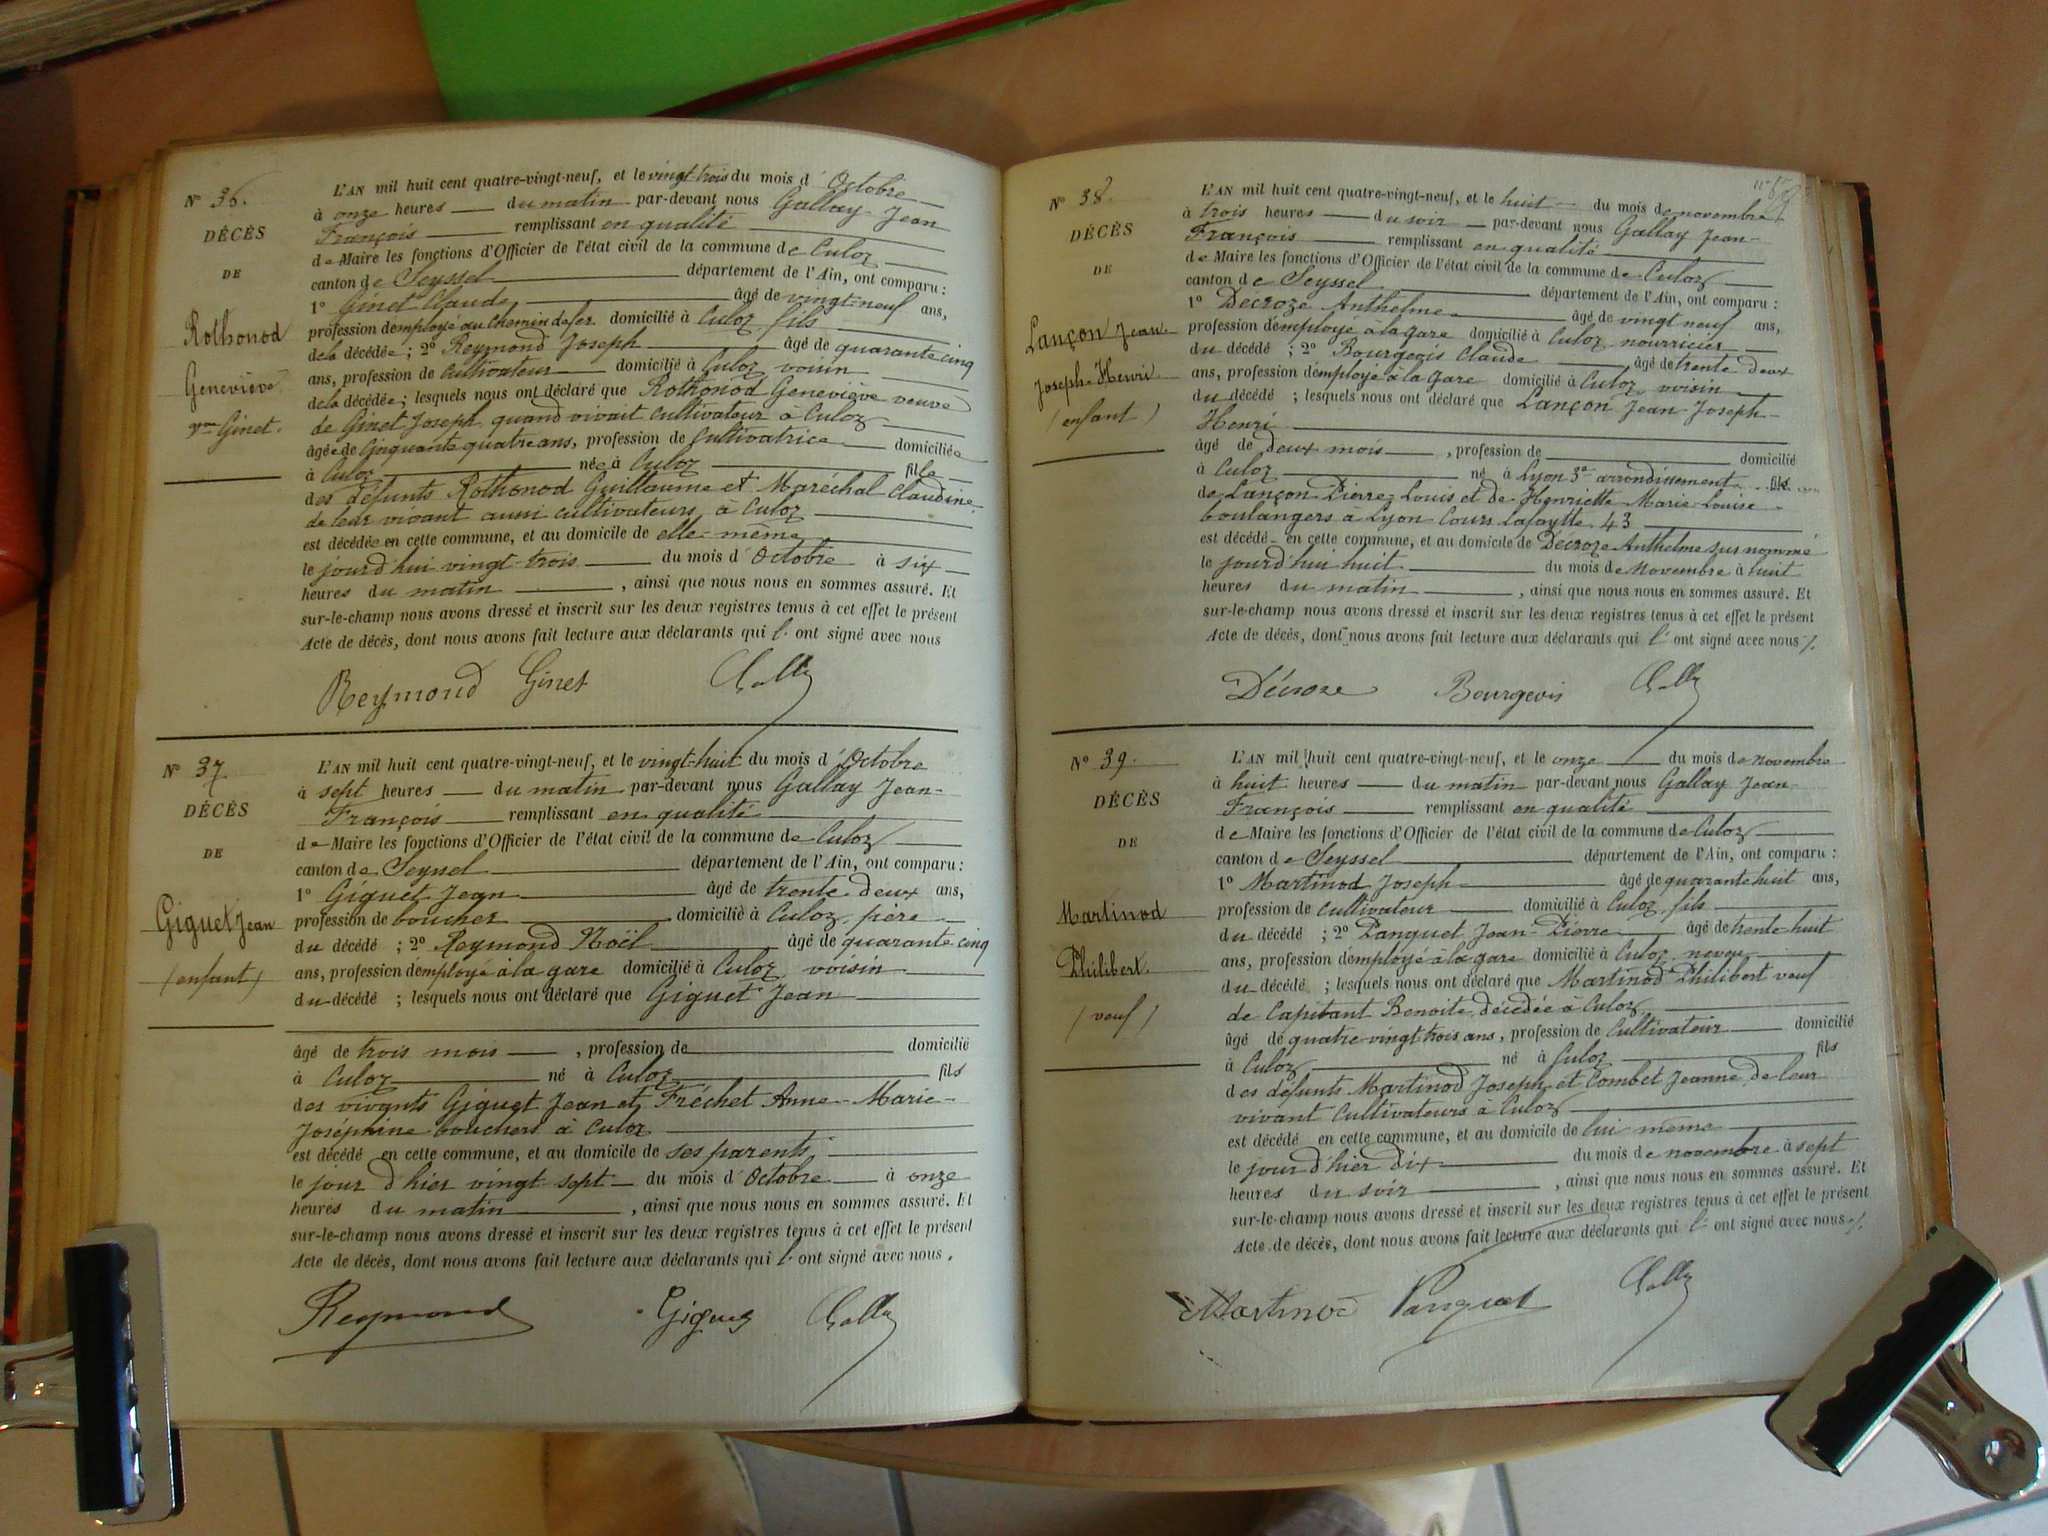 Nº 36.
DÉCÈS
DE
Rothonod
Geneviève
vve Ginet.
L'AN mil huit cent quatre-vingt-neuf, et le vingt-trois du mois d'Octobre
à onze heures du matin par-devant nous Gallay Jean
François remplissant en qualité
de Maire les fonctions d'Officier de l'état civil de la commune de Culoz
canton de Seyssel département de l'Ain, ont comparu :
1º Ginet Claude âgé de vingt-neuf ans,
profession d'employé au chemin de fer domicilié à Culoz fils
de la décédée ; 2º Reymond Joseph âgé de quarante cinq
ans, profession de cultivateur domicilié à Culoz voisin
de la décédée ; lesquels nous ont déclaré que Rothonod Geneviève veuve
de Ginet Joseph quand vivait cultivateur à Culoz
âgée de Cinquante quatre ans, profession de Cultivatrice domiciliée
à Culoz née à Culoz fille
des défunts Rothonod Guillaume et Maréchal Claudine
de leur vivant aussi cultivateurs à Culoz
est décédée en cette commune, et au domicile de elle-même
le jourd'hui vingt-trois du mois d'Octobre à six
heures du matin, ainsi que nous nous en sommes assuré. Et
sur-le-champ nous avons dressé et inscrit sur les deux registres tenus à cet effet le présent
Acte de décès, dont nous avons fait lecture aux déclarants qui l'ont signé avec nous
Reymond Ginet Gallay
Nº 37
DÉCÈS
DE
Giguet Jean
(enfant)
L'AN mil huit cent quatre-vingt-neuf, et le vingt-huit du mois d'Octobre
à sept heures du matin par-devant nous Gallay Jean-
François remplissant en qualité
de Maire les fonctions d'Officier de l'état civil de la commune de Culoz
canton de Seyssel département de l'Ain, ont comparu :
1º Giguet Jean âgé de trente-deux ans,
profession de boucher domicilié à Culoz, père
du décédé ; 2º Reymond Noël âgé de quarante cinq
ans, profession d'employé à la gare domicilié à Culoz voisin
du décédé ; lesquels nous ont déclaré que Giguet Jean
âgé de trois mois, profession de domicilié
à Culoz né à Culoz fils
des vivants Giguet Jean et Fréchet Anne-Marie-
Joséphine bouchers à Culoz
est décédé en cette commune, et au domicile de ses parents
le jour d'hier vingt sept du mois d'Octobre à onze
heures du matin, ainsi que nous nous en sommes assuré. Et
sur-le-champ nous avons dressé et inscrit sur les deux registres tenus à cet effet le présent
Acte de décès, dont nous avons fait lecture aux déclarants qui l'ont signé avec nous.
Reymond Giguet Gallay
Nº 38.
DÉCÈS
DE
Lançon Jean
Joseph-Henri
(enfant)
L'AN mil huit cent quatre-vingt-neuf, et le huit du mois de novembre
à trois heures du soir par-devant nous Gallay Jean-
François remplissant en qualité
de Maire les fonctions d'Officier de l'état civil de la commune de Culoz
canton de Seyssel département de l'Ain, ont comparu :
1º Décroze Anthelme âgé de vingt neuf ans,
profession d'employé à la gare domicilié à Culoz nourricier
du décédé ; 2º Bourgeois Claude âgé de trente deux
ans, profession d'employé à la gare domicilié à Culoz voisin
du décédé ; lesquels nous ont déclaré que Lançon Jean-Joseph-
Henri
âgé de deux mois, profession de domicilié
à Culoz né à Lyon 3e arrondissement fils
de Lançon Pierre-Louis et de Henriette Marie Louise
boulangers à Lyon Cours Lafaytte 43
est décédé en cette commune, et au domicile de Décroze Anthelme sus nommé
le jourd'hui huit du mois de Novembre à huit
heures du matin, ainsi que nous nous en sommes assuré. Et
sur-le-champ nous avons dressé et inscrit sur les deux registres tenus à cet effet le présent
Acte de décès, dont nous avons fait lecture aux déclarants qui l'ont signé avec nous
Décroze Bourgeois Gallay
Nº 39.
DÉCÈS
DE
Martinod
Philibert.
(veuf)
L'AN mil huit cent quatre-vingt-neuf, et le onze du mois de novembre
à huit heures du matin par-devant nous Gallay Jean-
François remplissant en qualité
de Maire les fonctions d'Officier de l'état civil de la commune de Culoz
canton de Seyssel département de l'Ain, ont comparu :
1º Martinod Joseph âgé de quarante huit ans,
profession de cultivateur domicilié à Culoz, fils
du décédé ; 2º Panguet Jean-Pierre âgé de trente-huit
ans, profession d'employé à la gare domicilié à Culoz neveu
du décédé ; lesquels nous ont déclaré que Martinod Philibert veuf
de Capitant Benoite décédée à Culoz
âgé de quatre vingt trois ans, profession de Cultivateur domicilié
à Culoz né à Culoz fils
des défunts Martinod Joseph et Combet Jeanne de leur
vivant Cultivateurs à Culoz
est décédé en cette commune, et au domicile de lui même
le jour d'hier dix du mois de novembre à sept
heures du soir, ainsi que nous nous en sommes assuré. Et
sur-le-champ nous avons dressé et inscrit sur les deux registres tenus à cet effet le présent
Acte de décès, dont nous avons fait lecture aux déclarants qui l'ont signé avec nous
Martinod Panguet Gallay